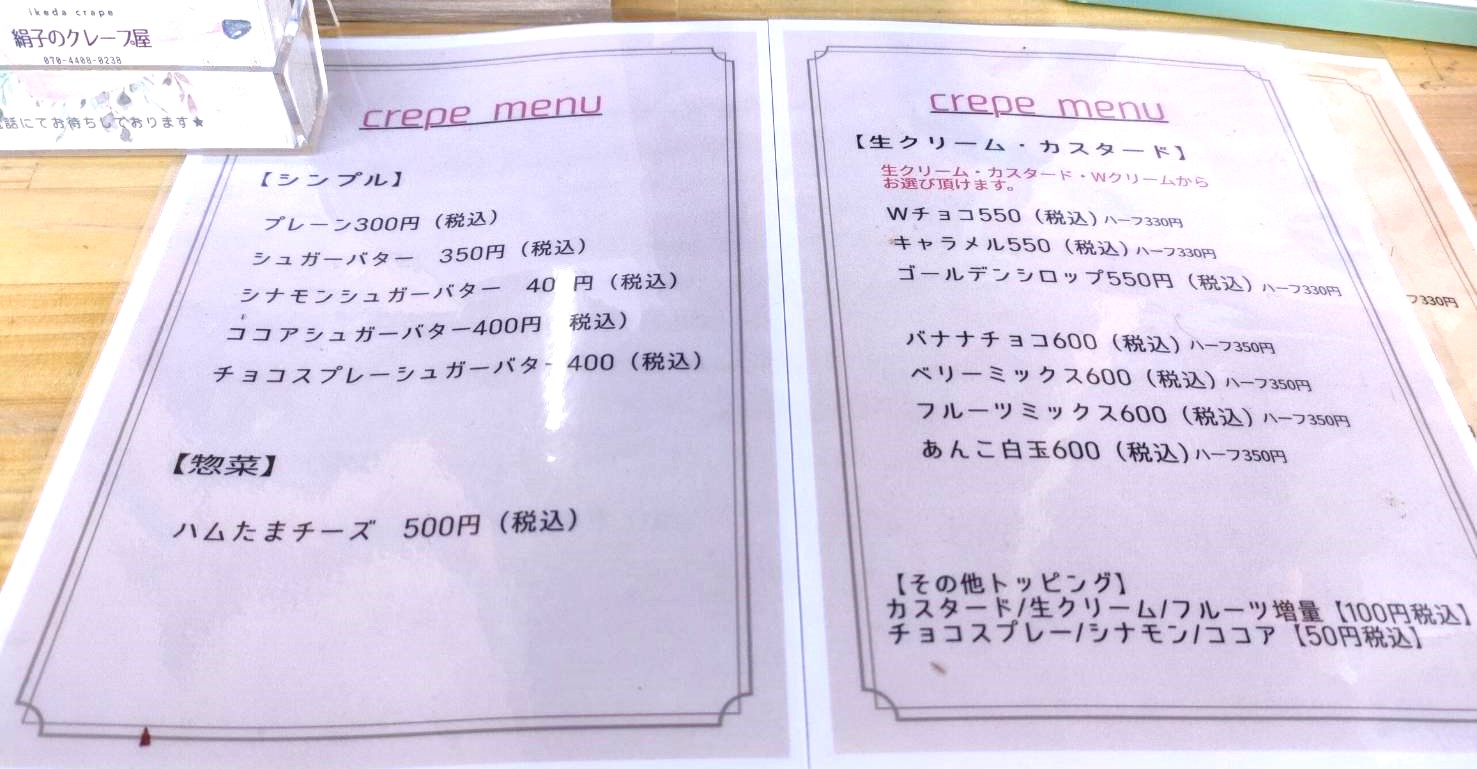 ikeda crape
絹子のクレープ屋
070-4408-0238
話にてお待ちしております★
crepe menu
【シンプル】
プレーン300円（税込）
シュガーバター 350円（税込）
シナモンシュガーバター 40 円（税込）
ココアシュガーバター400円 税込）
チョコスプレーシュガーバター 400（税込）
【惣菜】
ハムたまチーズ 500円（税込）
crepe menu
【生クリーム・カスタード】
生クリーム・カスタード・Wクリームから
お選び頂けます。
Wチョコ550（税込）ハーフ330円
キャラメル550（税込）ハーフ330円
ゴールデンシロップ550円（税込）ハーフ330円
バナナチョコ600（税込）ハーフ350円
ベリーミックス600（税込）ハーフ350円
フルーツミックス600（税込）ハーフ350円
あんこ白玉600（税込）ハーフ350円
【その他トッピング】
カスタード/生クリーム/フルーツ増量【100円税込】
チョコスプレー/シナモン/ココア【50円税込】
フ330円